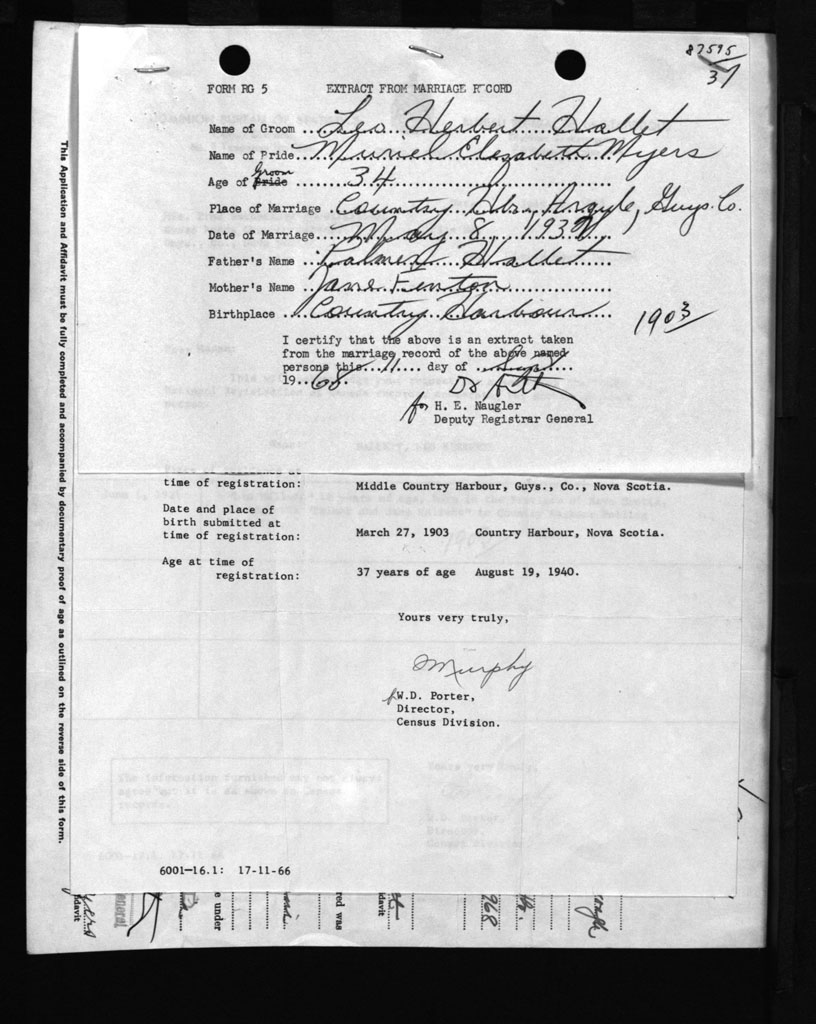 87595
31
FORM RG 5 EXTRACT FROM MARRIAGE RECORD
Name of Groom ...Leo Herbert Hallet
Name of Bride...Muriel Elizabeth Myers
Groom
Age of Bride ........34........
Place of Marriage .Country Hbr, Argyle, Guys. Co.
Date of Marriage...May 8 1937
Father's Name ...Palmer Hallet
Mother's Name ..Jane Fenton
Birthplace ...Country Harbour...
1903
I certify that the above is an extract taken
from the marriage record of the above named
persons this...11.... day of ...Sept
19..68.
for H. E. Naugler
Deputy Registrar General
time of registration: Middle Country Harbour, Guys., Co., Nova Scotia.
Date and place of
birth submitted at
time of registration: March 27, 1903 Country Harbour, Nova Scotia.
Age at time of
registration: 37 years of age August 19, 1940.
Yours very truly,
Murphy
W.D. Porter,
Director,
Census Division.
6001-16.1: 17-11-66
This Application and Affidavit must be fully completed and accompanied by documentary proof of age as outlined on the reverse side of this form.
yers
davit
General
e under
red was
davit
968